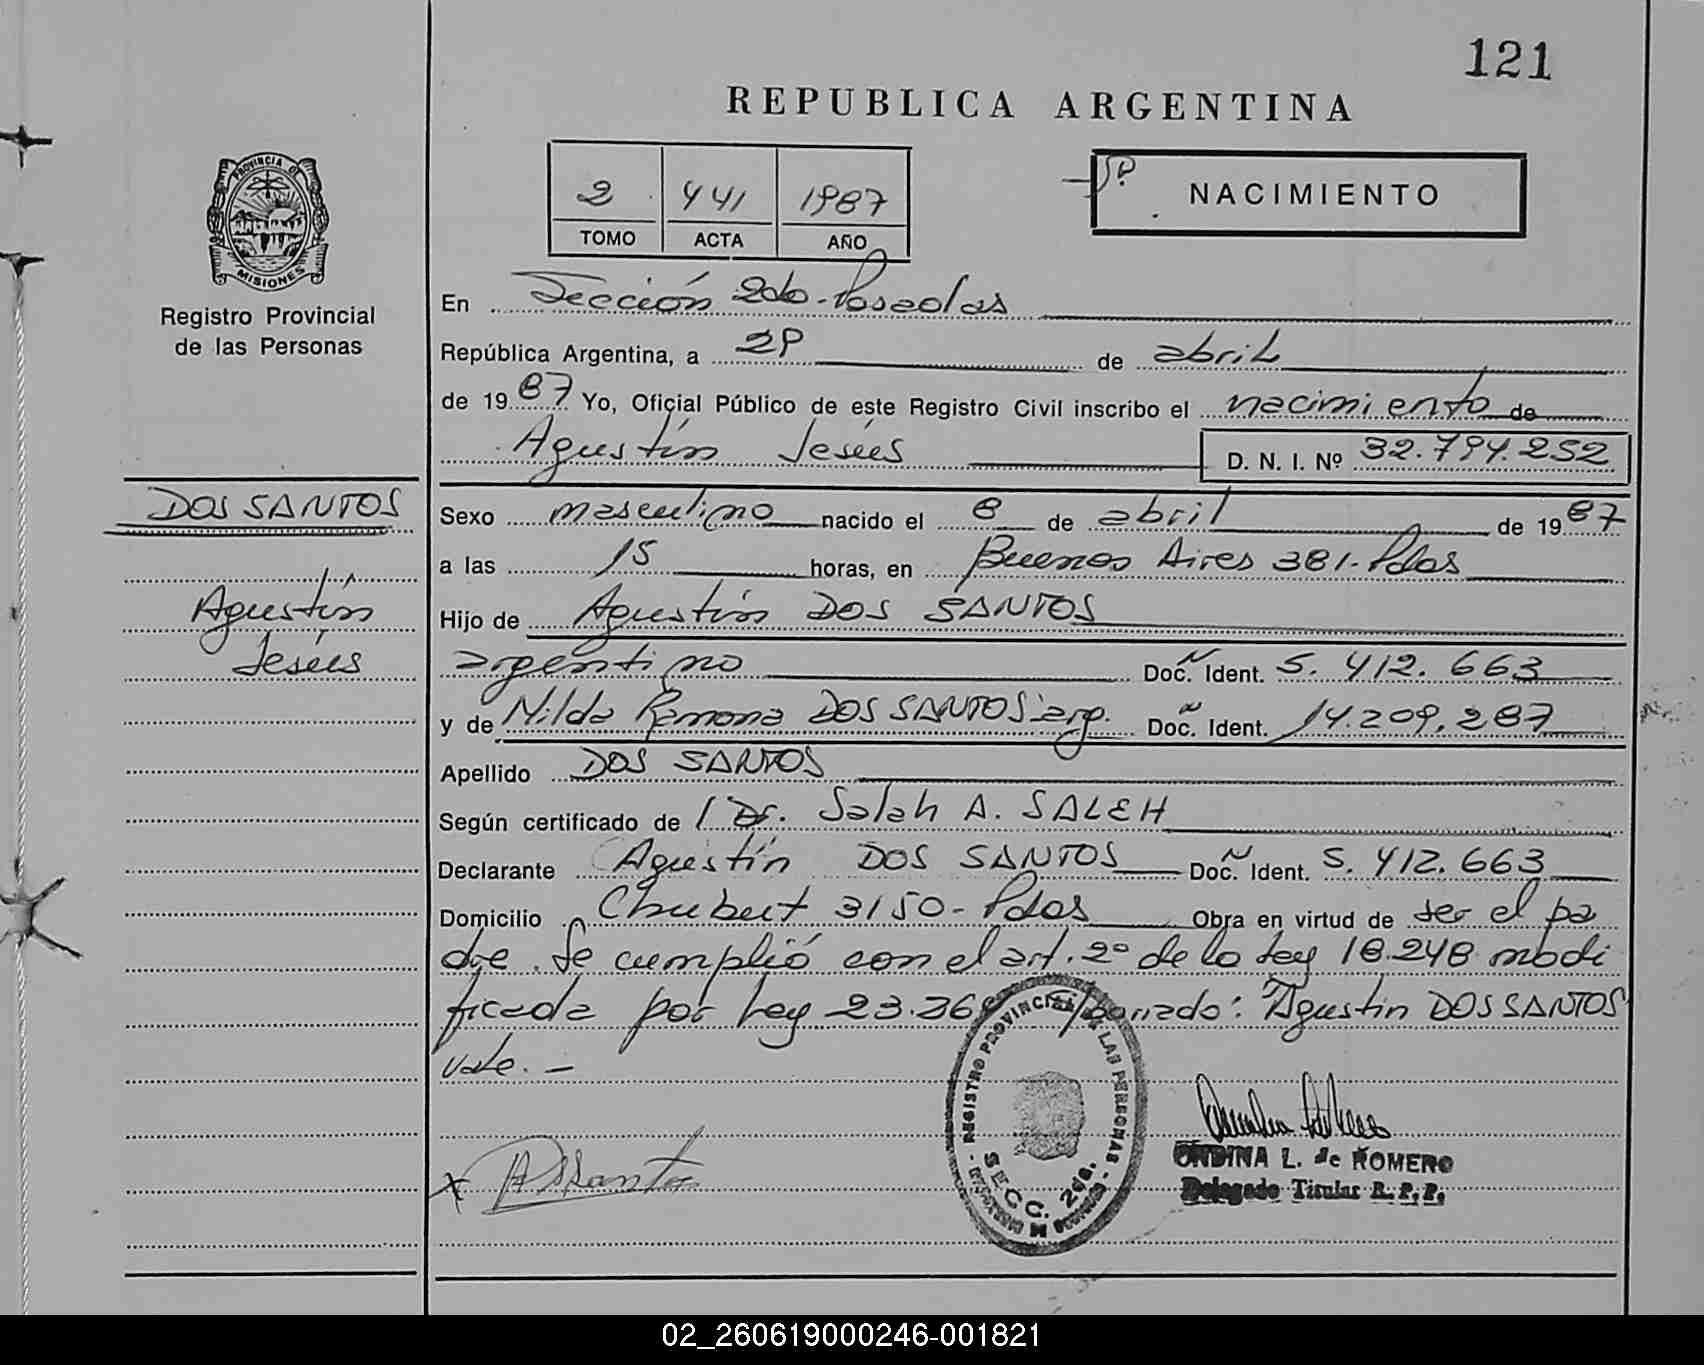 121
REPUBLICA ARGENTINA
2 441 1987
TOMO ACTA AÑO
NACIMIENTO
PROVINCIA DE
MISIONES
Registro Provincial
de las Personas
En Sección 2da-Posadas
República Argentina, a 29 de abril
de 1987 Yo, Oficial Público de este Registro Civil inscribo el nacimiento de
Agustín Jesús D. N. I. Nº 32.794.252
DOS SANTOS
Agustín
Jesús
Sexo masculino nacido el 8 de abril de 1987
a las 15 horas, en Buenos Aires 381-Pdas
Hijo de Agustín DOS SANTOS
argentino Doc. Ident. 5.412.663
y de Nilda Ramona DOS SANTOS arg. Doc. Ident. 14.209.287
Apellido DOS SANTOS
Según certificado de / Dr. Salah A. SALEH
Declarante Agustín DOS SANTOS Doc. Ident. 5.412.663
Domicilio Chubut 3150-Pdas Obra en virtud de ser el pa
dre. Se cumplió con el art. 2º de la Ley 18.248 modi
ficada por Ley 23.26 borrado: Agustín DOS SANTOS
vale.-
REGISTRO PROVINCIAL DE LAS PERSONAS
SECC. 2da.
ONDINA L. de ROMERO
Delegado Titular R. P. P.
02_260619000246-001821